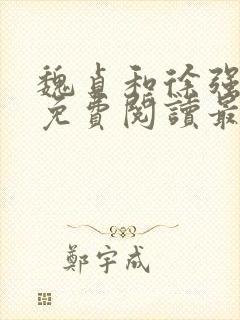 魏貞和徐強
免費閱讀最
鄭宇成